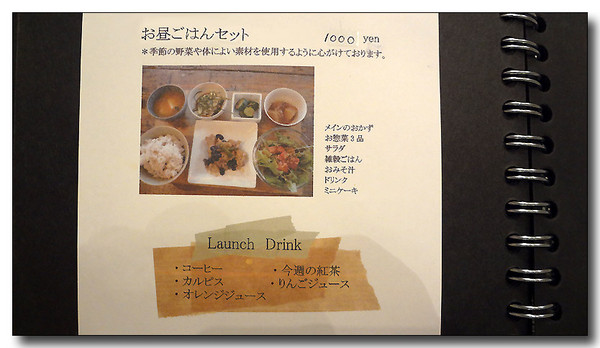 お昼ごはんセット 1000 yen
*季節の野菜や体によい素材を使用するように心がけております。
メインのおかず
お惣菜3品
サラダ
雑穀ごはん
おみそ汁
ドリンク
ミニケーキ
Launch Drink
・コーヒー ・今週の紅茶
・カルピス ・りんごジュース
・オレンジジュース